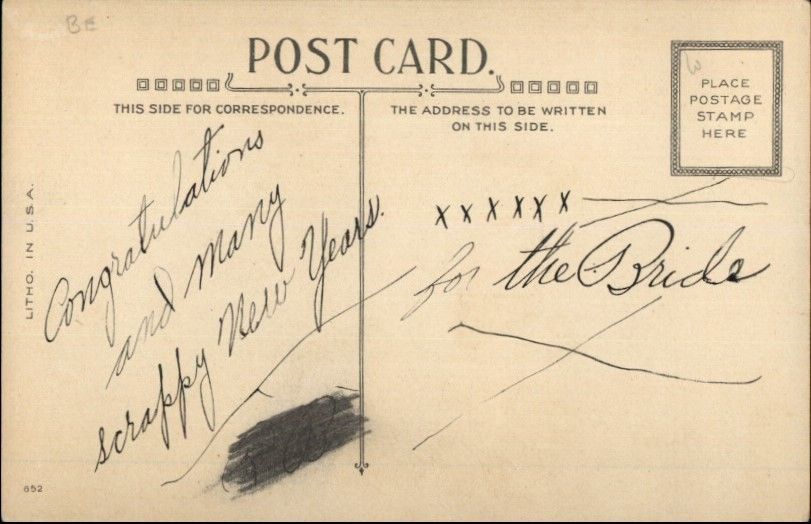 BE
POST CARD.
THIS SIDE FOR CORRESPONDENCE.
THE ADDRESS TO BE WRITTEN
ON THIS SIDE.
W
PLACE
POSTAGE
STAMP
HERE
LITHO. IN U.S.A.
Congratulations
and many
scrappy New Years.
x x x x x x
for the Bride
652